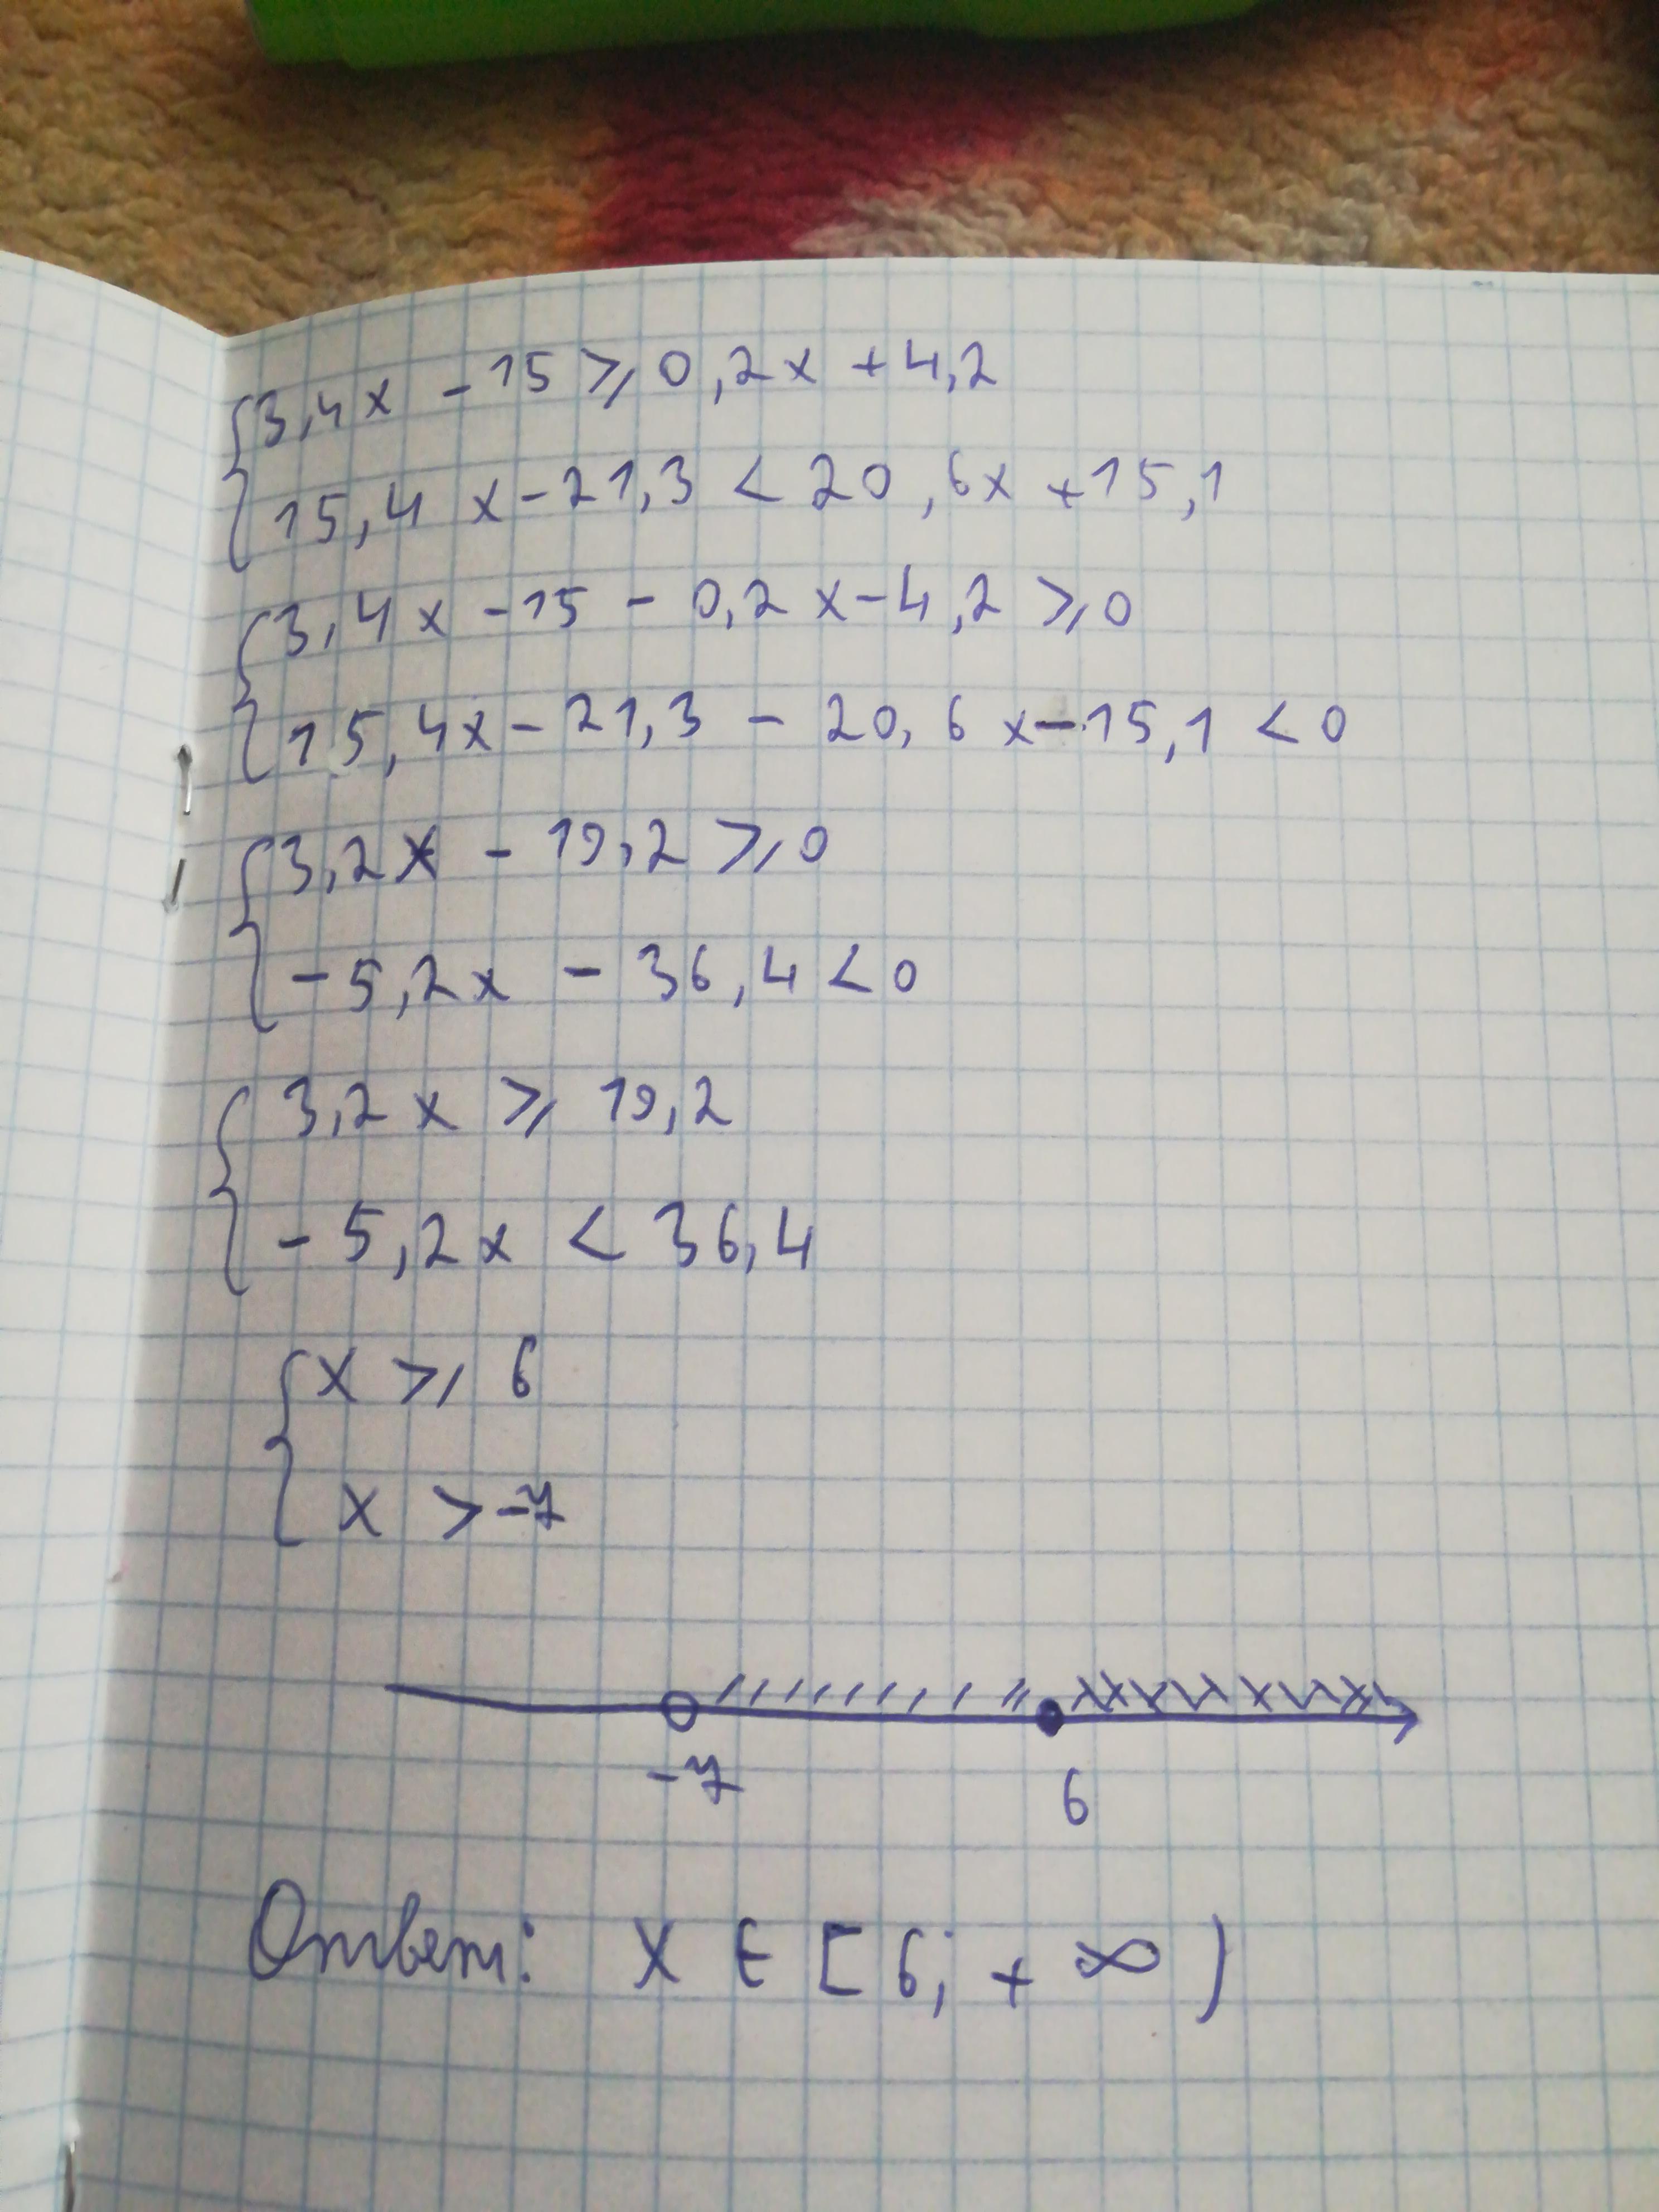 3,4x - 15 ⩾ 0,2x + 4,2
15,4x - 21,3 < 20,6x + 15,1
3,4x - 15 - 0,2x - 4,2 ⩾ 0
15,4x - 21,3 - 20,6x - 15,1 < 0
3,2x - 19,2 ⩾ 0
-5,2x - 36,4 < 0
3,2x ⩾ 19,2
-5,2x < 36,4
x ⩾ 6
x > -7
-7 6
Ответ: x ∈ [6; + ∞)